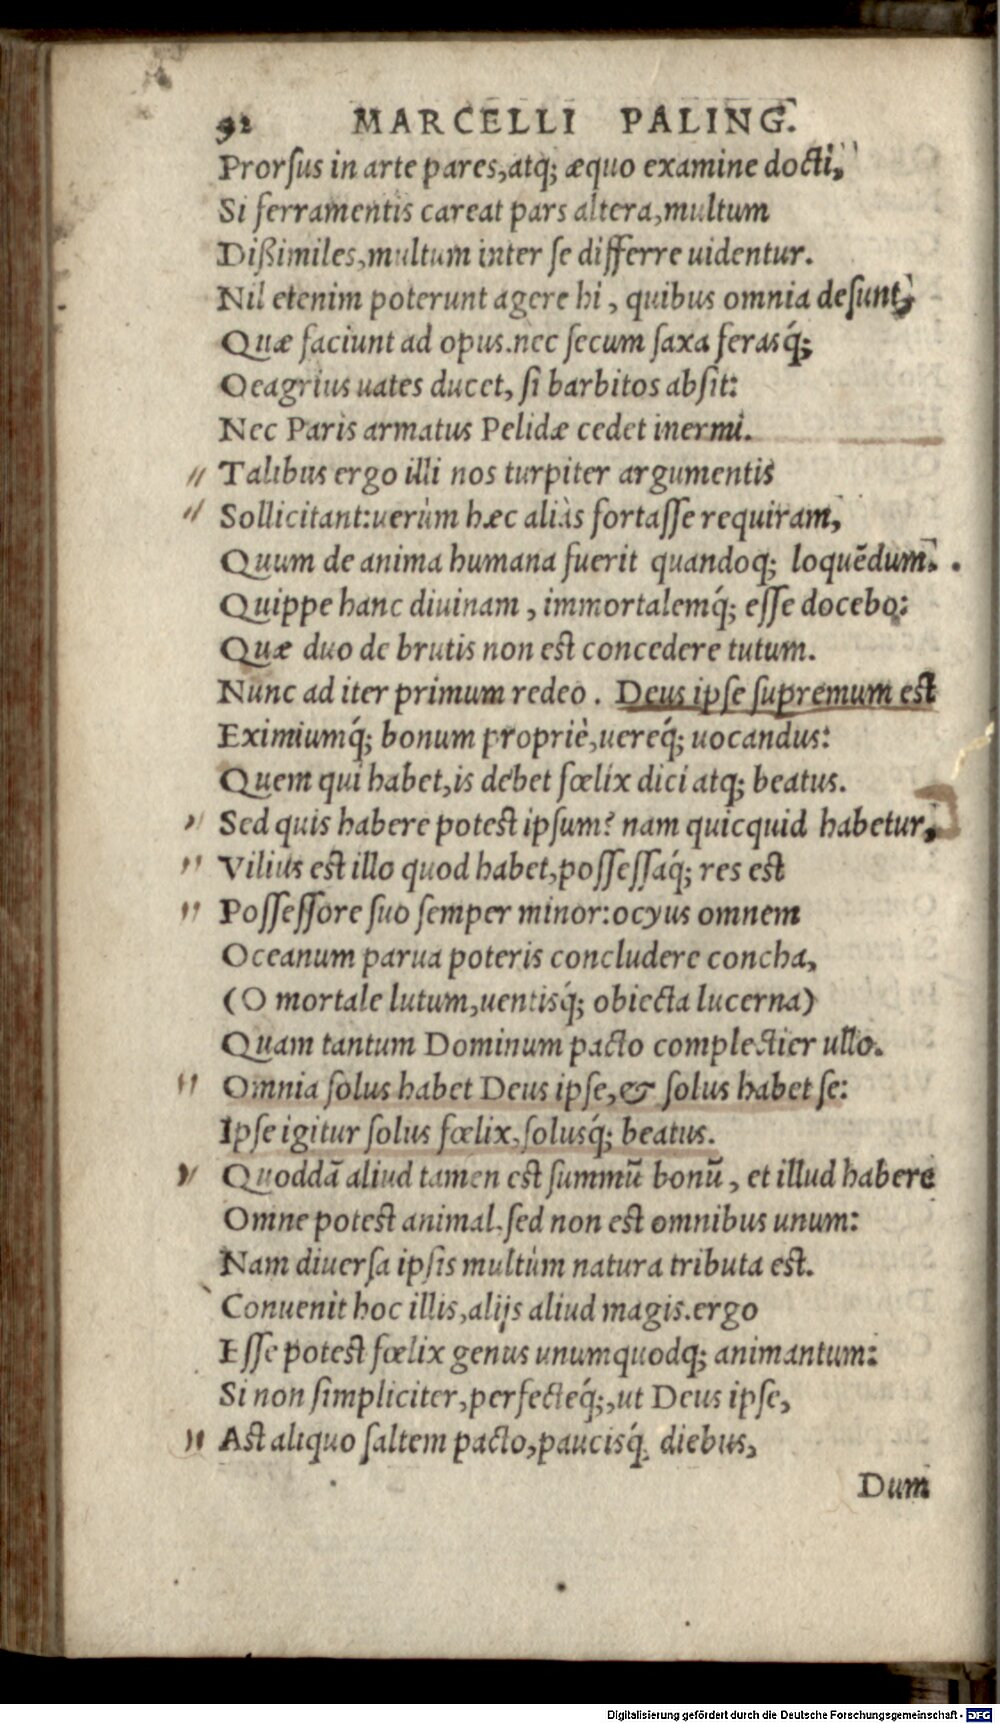 92 MARCELLI PALING.
Prorſus in arte pares,atq; æquo examine docti,
Si ferramentis careat pars altera,multum
Dißimiles,multum inter ſe differre uidentur.
Nil etenim poterunt agere hi, quibus omnia deſunt,
Quæ faciunt ad opus.nec ſecum ſaxa feraśq;
Oeagrius uates ducet, ſi barbitos abſit:
Nec Paris armatus Pelidæ cedet inermi.
" Talibus ergo illi nos turpiter argumentis
" Sollicitant:uerùm hæc aliàs fortaſſe requiram,
Quum de anima humana fuerit quandoq; loquẽdum.
Quippe hanc diuinam, immortalemq́; eſſe docebo:
Quæ duo de brutis non est concedere tutum.
Nunc ad iter primum redeo. Deus ipſe ſupremum est
Eximiumq́; bonum propriè,uereq́; uocandus:
Quem qui habet,is debet fœlix dici atq; beatus.
" Sed quis habere potest ipſum? nam quicquid habetur,
" Vilius est illo quod habet,poſſeſſaq́; res est
" Poſſeſſore ſuo ſemper minor:ocyus omnem
Oceanum parua poteris concludere concha,
(O mortale lutum,uentisq́; obiecta lucerna)
Quam tantum Dominum pacto complectier ullo.
" Omnia ſolus habet Deus ipſe,& ſolus habet ſe:
Ipſe igitur ſolus fœlix,ſolusq́; beatus.
" Quoddã aliud tamen est ſummũ bonũ, et illud habere
Omne potest animal.ſed non est omnibus unum:
Nam diuerſa ipſis multùm natura tributa est.
Conuenit hoc illis,alijs aliud magis.ergo
Eſſe potest fœlix genus unumquodq; animantum:
Si non ſimpliciter,perfecteq́;,ut Deus ipſe,
" Ast aliquo ſaltem pacto,paucisq́; diebus,
Dum
Digitalisierung gefördert durch die Deutsche Forschungsgemeinschaft - DFG